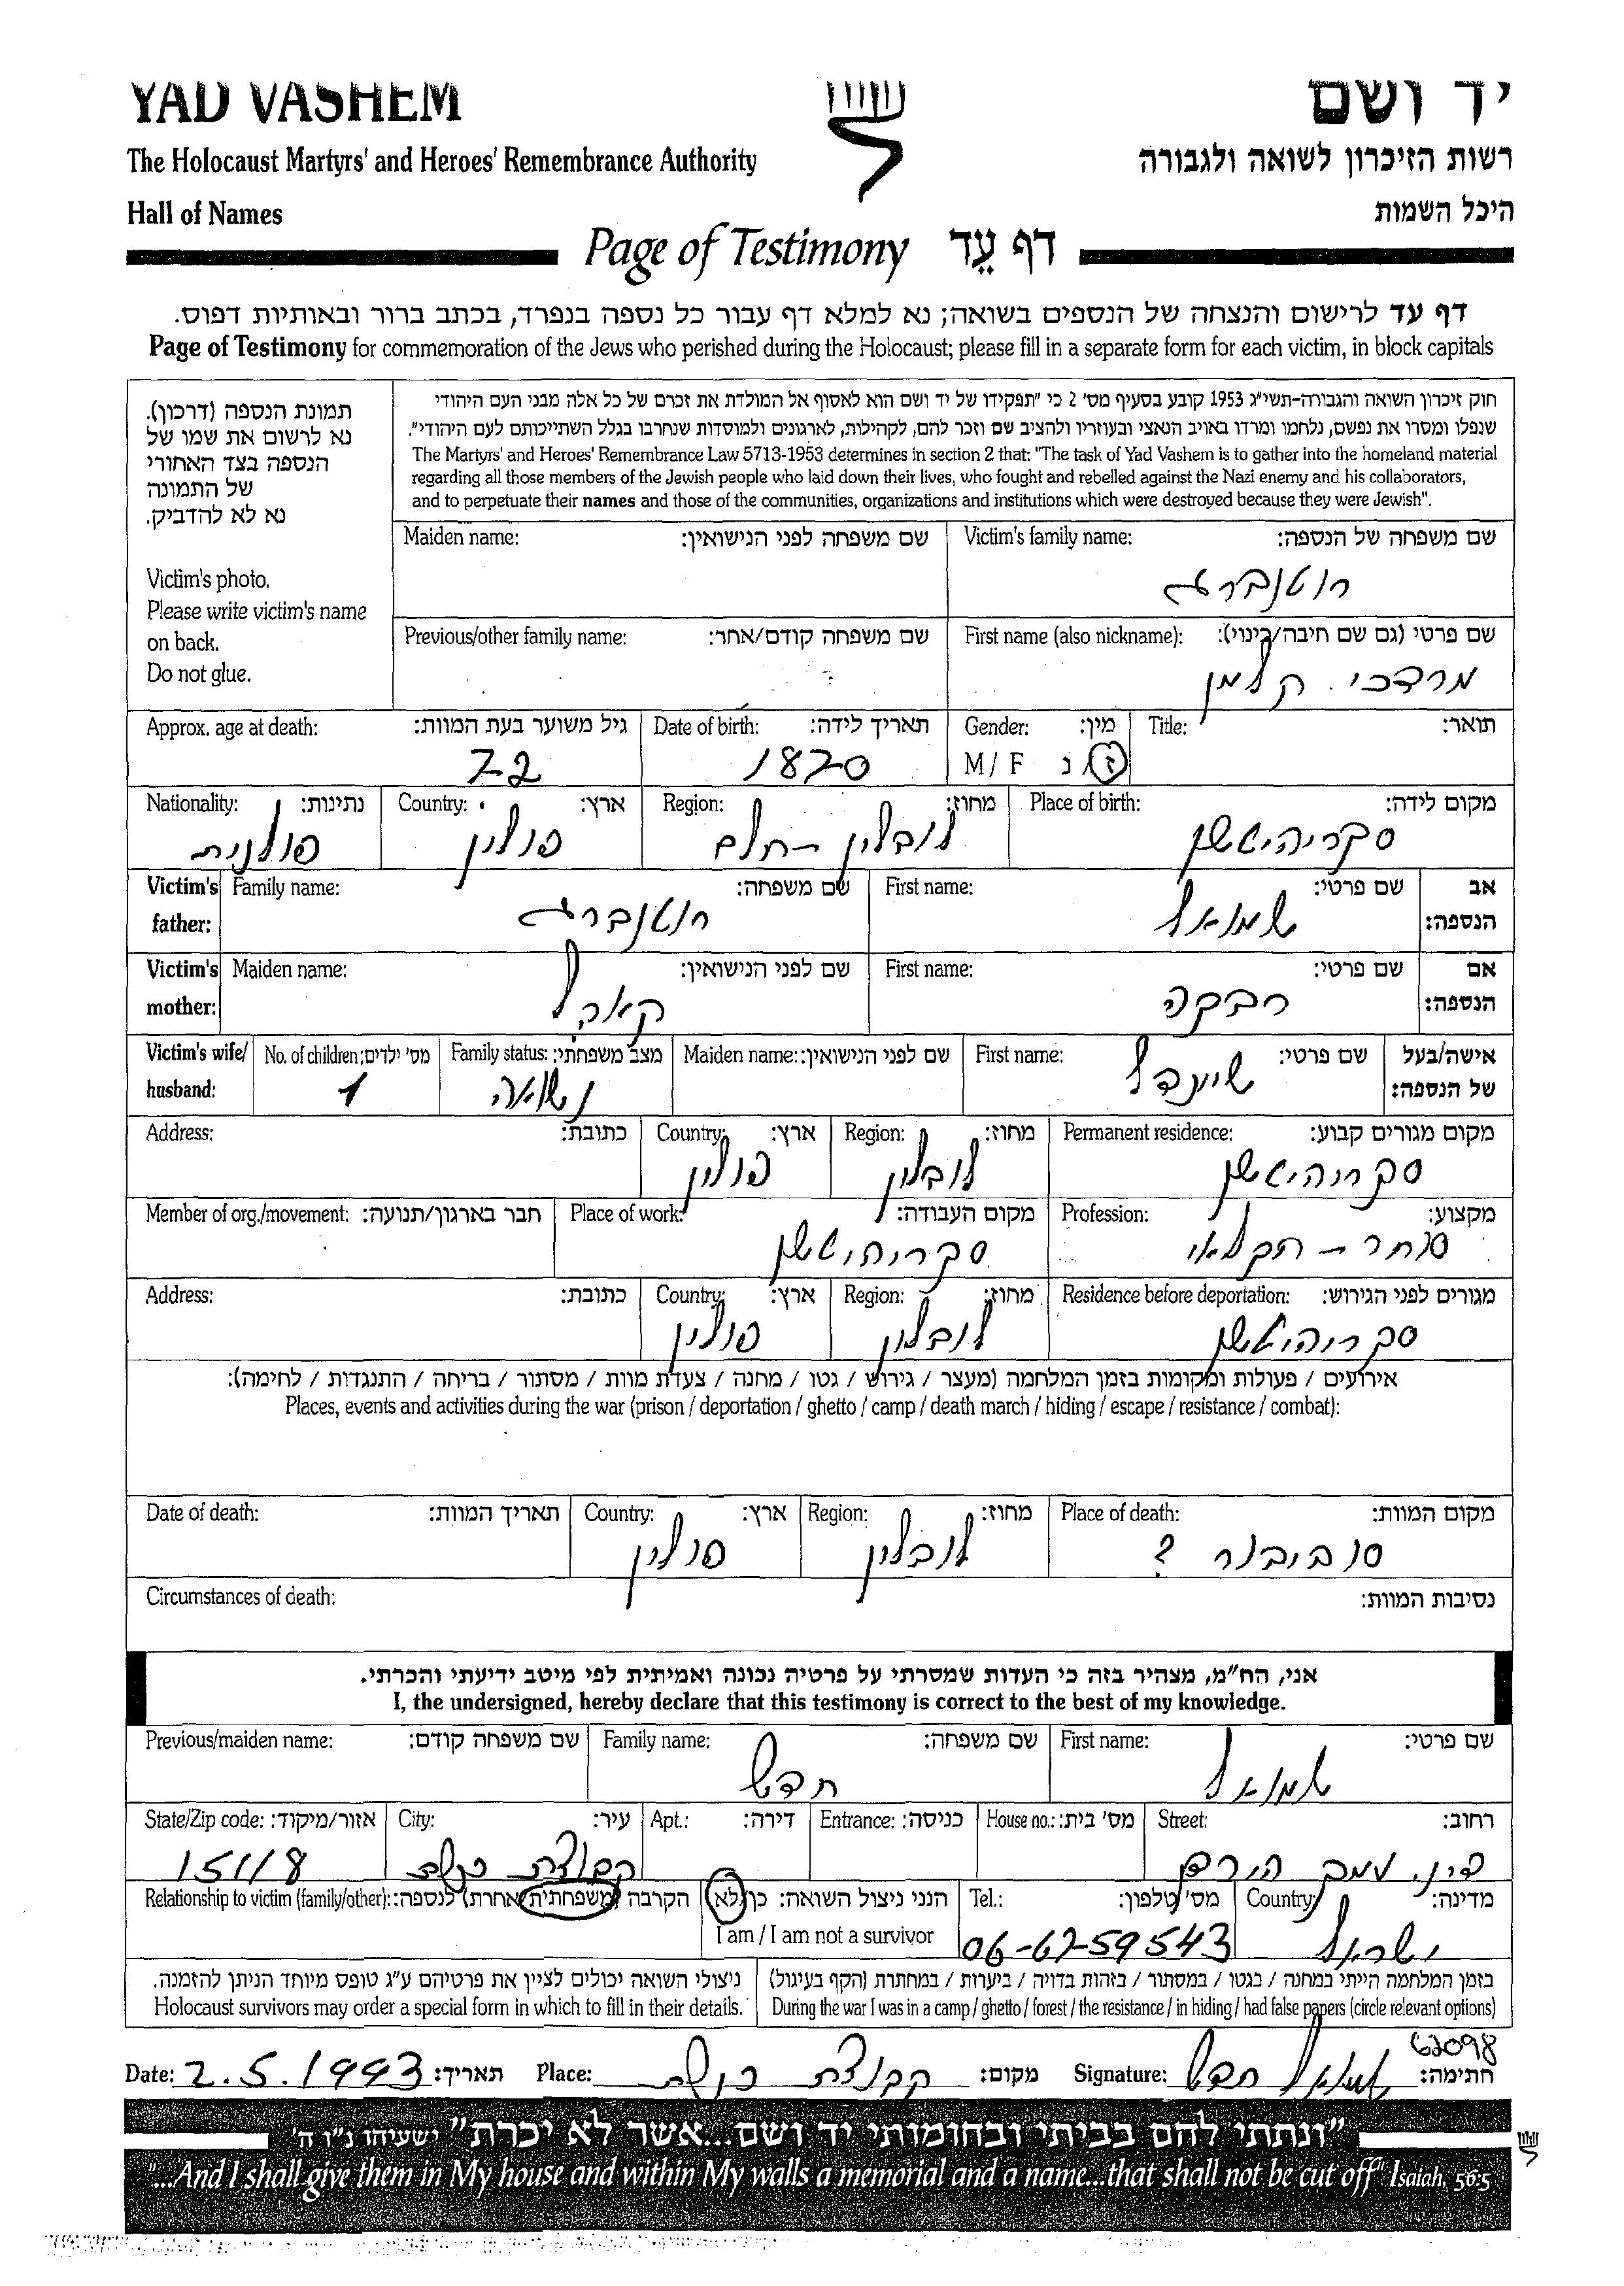 YAD VASHEM
יד ושם
The Holocaust Martyrs' and Heroes' Remembrance Authority
רשות הזיכרון לשואה ולגבורה
Hall of Names
היכל השמות
Page of Testimony דף עֵד
דף עד לרישום והנצחה של הנספים בשואה; נא למלא דף עבור כל נספה בנפרד, בכתב ברור ובאותיות דפוס.
Page of Testimony for commemoration of the Jews who perished during the Holocaust; please fill in a separate form for each victim, in block capitals
תמונת הנספה (דרכון).
נא לרשום את שמו של
הנספה בצד האחורי
של התמונה
נא לא להדביק.
Victim's photo.
Please write victim's name
on back.
Do not glue.
חוק זיכרון השואה והגבורה-תשי"ג 1953 קובע בסעיף מס' 2 כי "תפקידו של יד ושם הוא לאסוף אל המולדת את זכרם של כל אלה מבני העם היהודי
שנפלו ומסרו את נפשם, נלחמו ומרדו באויב הנאצי ובעוזריו ולהציב שם וזכר להם, לקהילות, לארגונים ולמוסדות שנחרבו בגלל השתייכותם לעם היהודי".
The Martyrs' and Heroes' Remembrance Law 5713-1953 determines in section 2 that: "The task of Yad Vashem is to gather into the homeland material
regarding all those members of the Jewish people who laid down their lives, who fought and rebelled against the Nazi enemy and his collaborators,
and to perpetuate their names and those of the communities, organizations and institutions which were destroyed because they were Jewish".
Victim's family name: שם משפחה של הנספה: Maiden name: שם משפחה לפני הנישואין:
רוטנברג
First name (also nickname): שם פרטי (גם שם חיבה/כינוי): Previous/other family name: שם משפחה קודם/אחר:
מרדכי קלמן
Title: תואר: Gender: מין: Date of birth: תאריך לידה: Approx. age at death: גיל משוער בעת המוות:
M / F ז / נ 1870 72
Place of birth: מקום לידה: Region: מחוז: Country: ארץ: Nationality: נתינות:
סקריהיטשין לובלין - חלם פולין פולנית
Victim's father: אב הנספה: First name: שם פרטי: Family name: שם משפחה:
שמואל רוטנברג
Victim's mother: אם הנספה: First name: שם פרטי: Maiden name: שם לפני הנישואין:
רבקה
Victim's wife/ husband: אישה/בעל של הנספה: First name: שם פרטי: Maiden name: שם לפני הנישואין: Family status: מצב משפחתי: No. of children: מס' ילדים:
שיינדל נשואה 1
Permanent residence: מקום מגורים קבוע: Region: מחוז: Country: ארץ: Address: כתובת:
סקריהיטשין לובלין פולין
Profession: מקצוע: Place of work: מקום העבודה: Member of org./movement: חבר בארגון/תנועה:
סוחר - חקלאי סקריהיטשין
Residence before deportation: מגורים לפני הגירוש: Region: מחוז: Country: ארץ: Address: כתובת:
סקריהיטשין לובלין פולין
אירועים / פעולות ומקומות בזמן המלחמה (מעצר / גירוש / גטו / מחנה / צעדת מוות / מסתור / בריחה / התנגדות / לחימה):
Places, events and activities during the war (prison / deportation / ghetto / camp / death march / hiding / escape / resistance / combat):
Place of death: מקום המוות: Region: מחוז: Country: ארץ: Date of death: תאריך המוות:
סוביבור ? לובלין פולין
Circumstances of death: נסיבות המוות:
אני, הח"מ, מצהיר בזה כי העדות שמסרתי על פרטיה נכונה ואמיתית לפי מיטב ידיעתי והכרתי.
I, the undersigned, hereby declare that this testimony is correct to the best of my knowledge.
First name: שם פרטי: Family name: שם משפחה: Previous/maiden name: שם משפחה קודם:
שמואל חבש
Street: רחוב: House no.: מס' בית: Entrance: כניסה: Apt.: דירה: City: עיר: State/Zip code: אזור/מיקוד:
עמק הירדן קבוצת כנרת 15118
Country: מדינה: Tel.: מס' טלפון: הנני ניצול השואה: כן/לא הקרבה (משפחתית/אחרת) לנספה: Relationship to victim (family/other):
ישראל 06-6759543 I am / I am not a survivor
בזמן המלחמה הייתי במחנה / בגטו / במסתור / בזהות בדויה / ביערות / במחתרת (הקף בעיגול)
During the war I was in a camp / ghetto / forest / the resistance / in hiding / had false papers (circle relevant options)
ניצולי השואה יכולים לציין את פרטיהם ע"ג טופס מיוחד הניתן להזמנה.
Holocaust survivors may order a special form in which to fill in their details.
62098
Date: 2.5.1993 תאריך: Place: קבוצת כנרת מקום: Signature: שמואל חבש חתימה:
"ונתתי להם בביתי ובחומותי יד ושם...אשר לא יכרת" ישעיהו נ"ו ה'
"...And I shall give them in My house and within My walls a memorial and a name...that shall not be cut off" Isaiah, 56:5